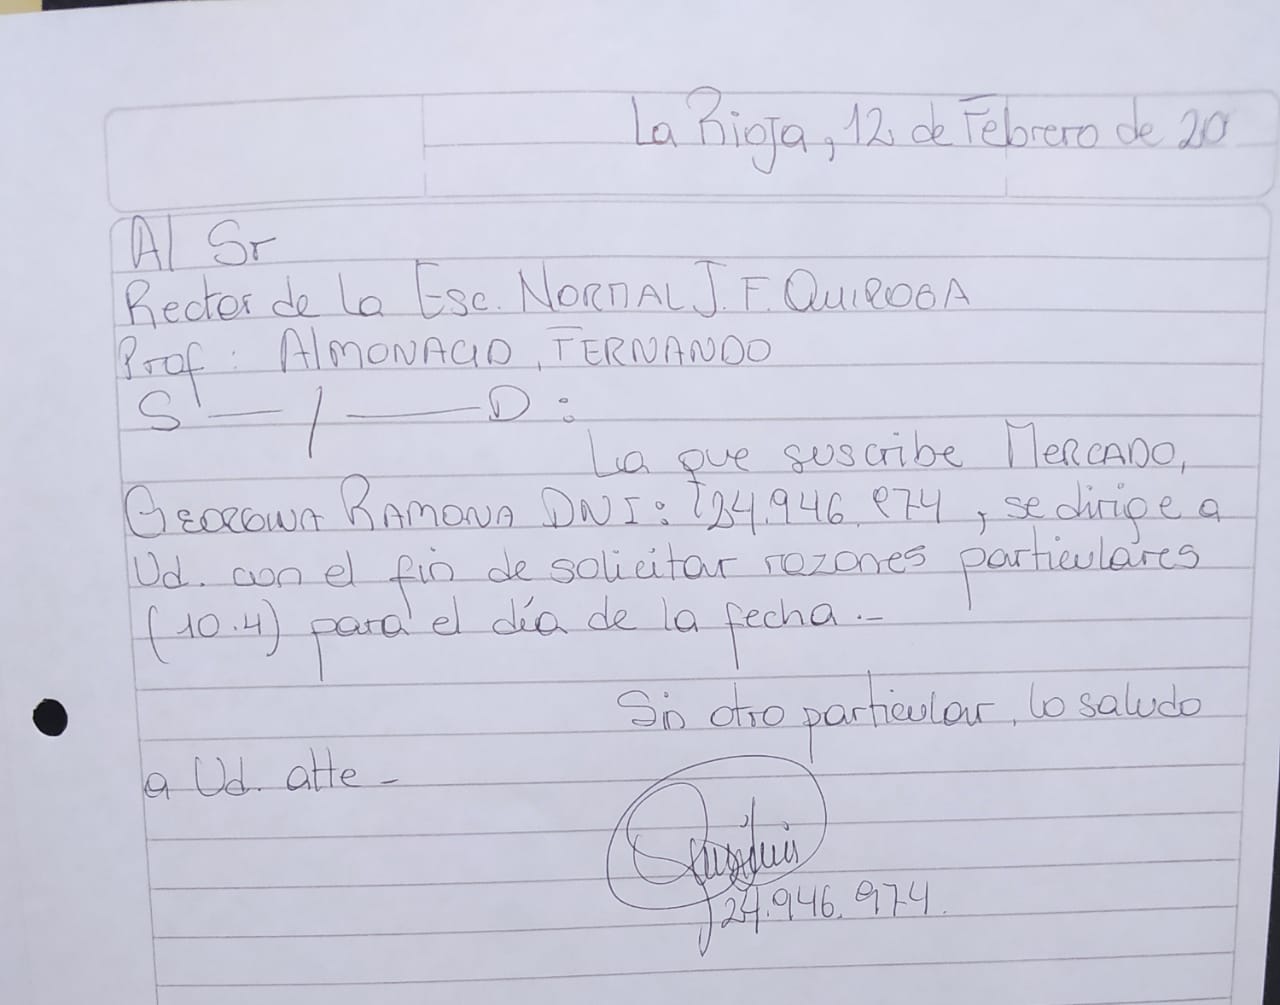 La Rioja, 12 de Febrero de 20
Al Sr
Rector de la Esc. NORMAL J. F. QUIROGA
Prof: ALMONACID, FERNANDO
S — / — D :
La que suscribe MERCADO,
RAMONA DNI: 24.946.974, se dirige a
Ud. con el fin de solicitar razones particulares
(10.4) para el día de la fecha.-
Sin otro particular, lo saludo
a Ud. atte -
24.946.974.